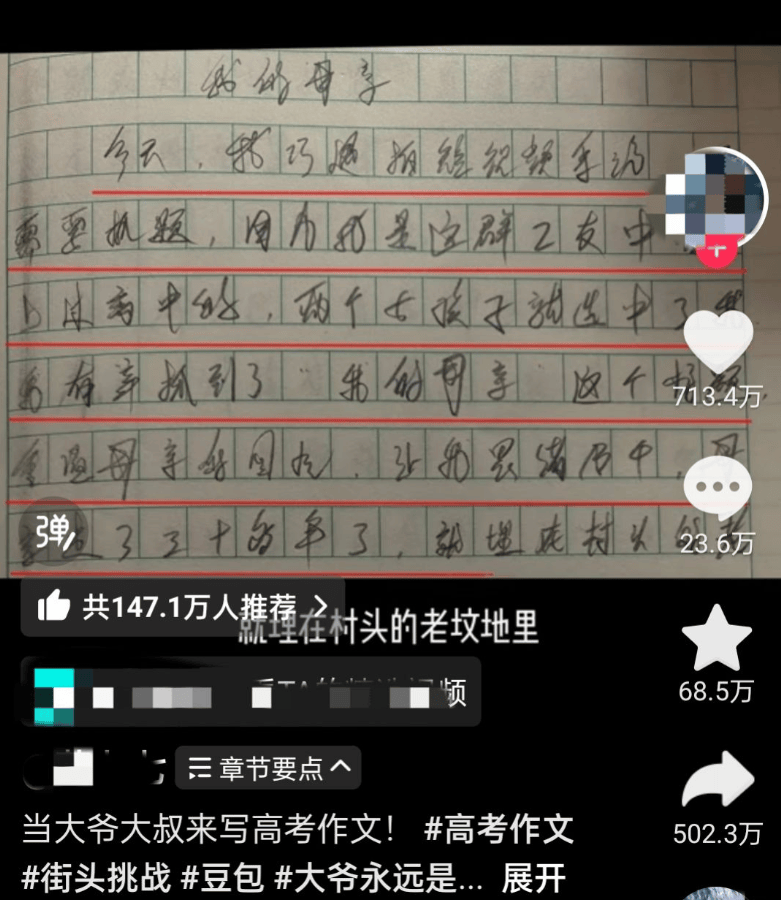 我的母亲
今天，我巧遇拍短视频手活
需要抓题，因为我是这群工友中
上过高中的，两个女孩子就选中了我
我有幸抓到了“我的母亲”这个
母亲的，让我思绪万千，母
了三十的年了，就埋在村头的老
弹
共147.1万人推荐 >
就埋在村头的老坟地里
频
七
章节要点
当大爷大叔来写高考作文！ #高考作文
#街头挑战 #豆包 #大爷永远是... 展开
713.4万
23.6万
68.5万
502.3万